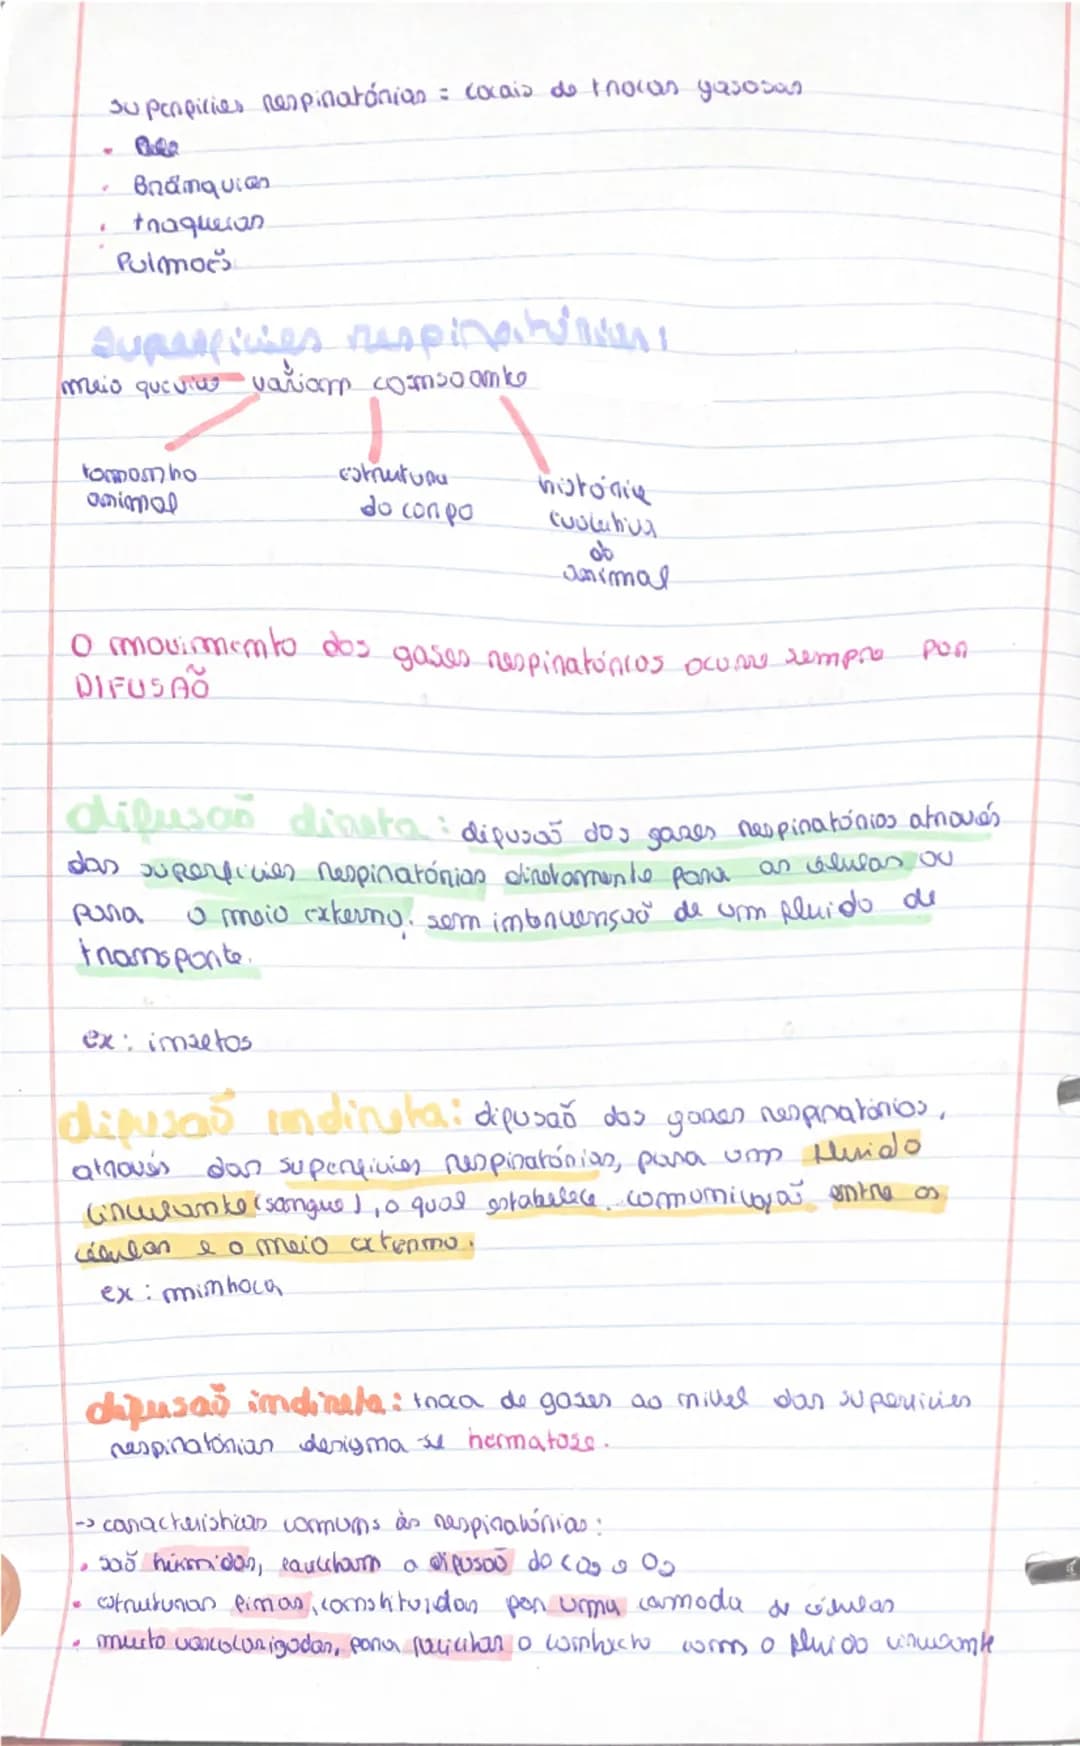 superfícies respiratórias = locais de trocas gasosas
• Pele
• Brânquias
• traqueias
• Pulmoẽs
Superfícies respiratórias:
meio que vive variam comsoamte
tamanho
animal
estrutura
do corpo
história
evolutiva
do
animal
O movimento dos gases respiratórios ocorre sempre por
DIFUSAÕ
difusaõ direta: difusaõ dos gases respiratórios através
das superfícies respiratórias diretamente para as células ou
para o meio externo. sem intervençaõ de um fluido de
transporte.
ex: insetos
difusaõ indireta: difusaõ dos gases respiratórios,
através das superfícies respiratórias, para um fluido
circulante (sangue), o qual estabelece comunicaçaõ entre as
células e o meio externo.
ex: minhoca
difusaõ indireta: troca de gases ao nivel das superficies
respiratórias designa-se hematose.
-> caracteristicas comuns às respiratórias:
• saõ húmidas, a difusaõ do CO2 e O2
• estruturas finas, constituidas por uma camada de células
• muito vascolarizadas, para facilitar o contacto com o fluido circulante